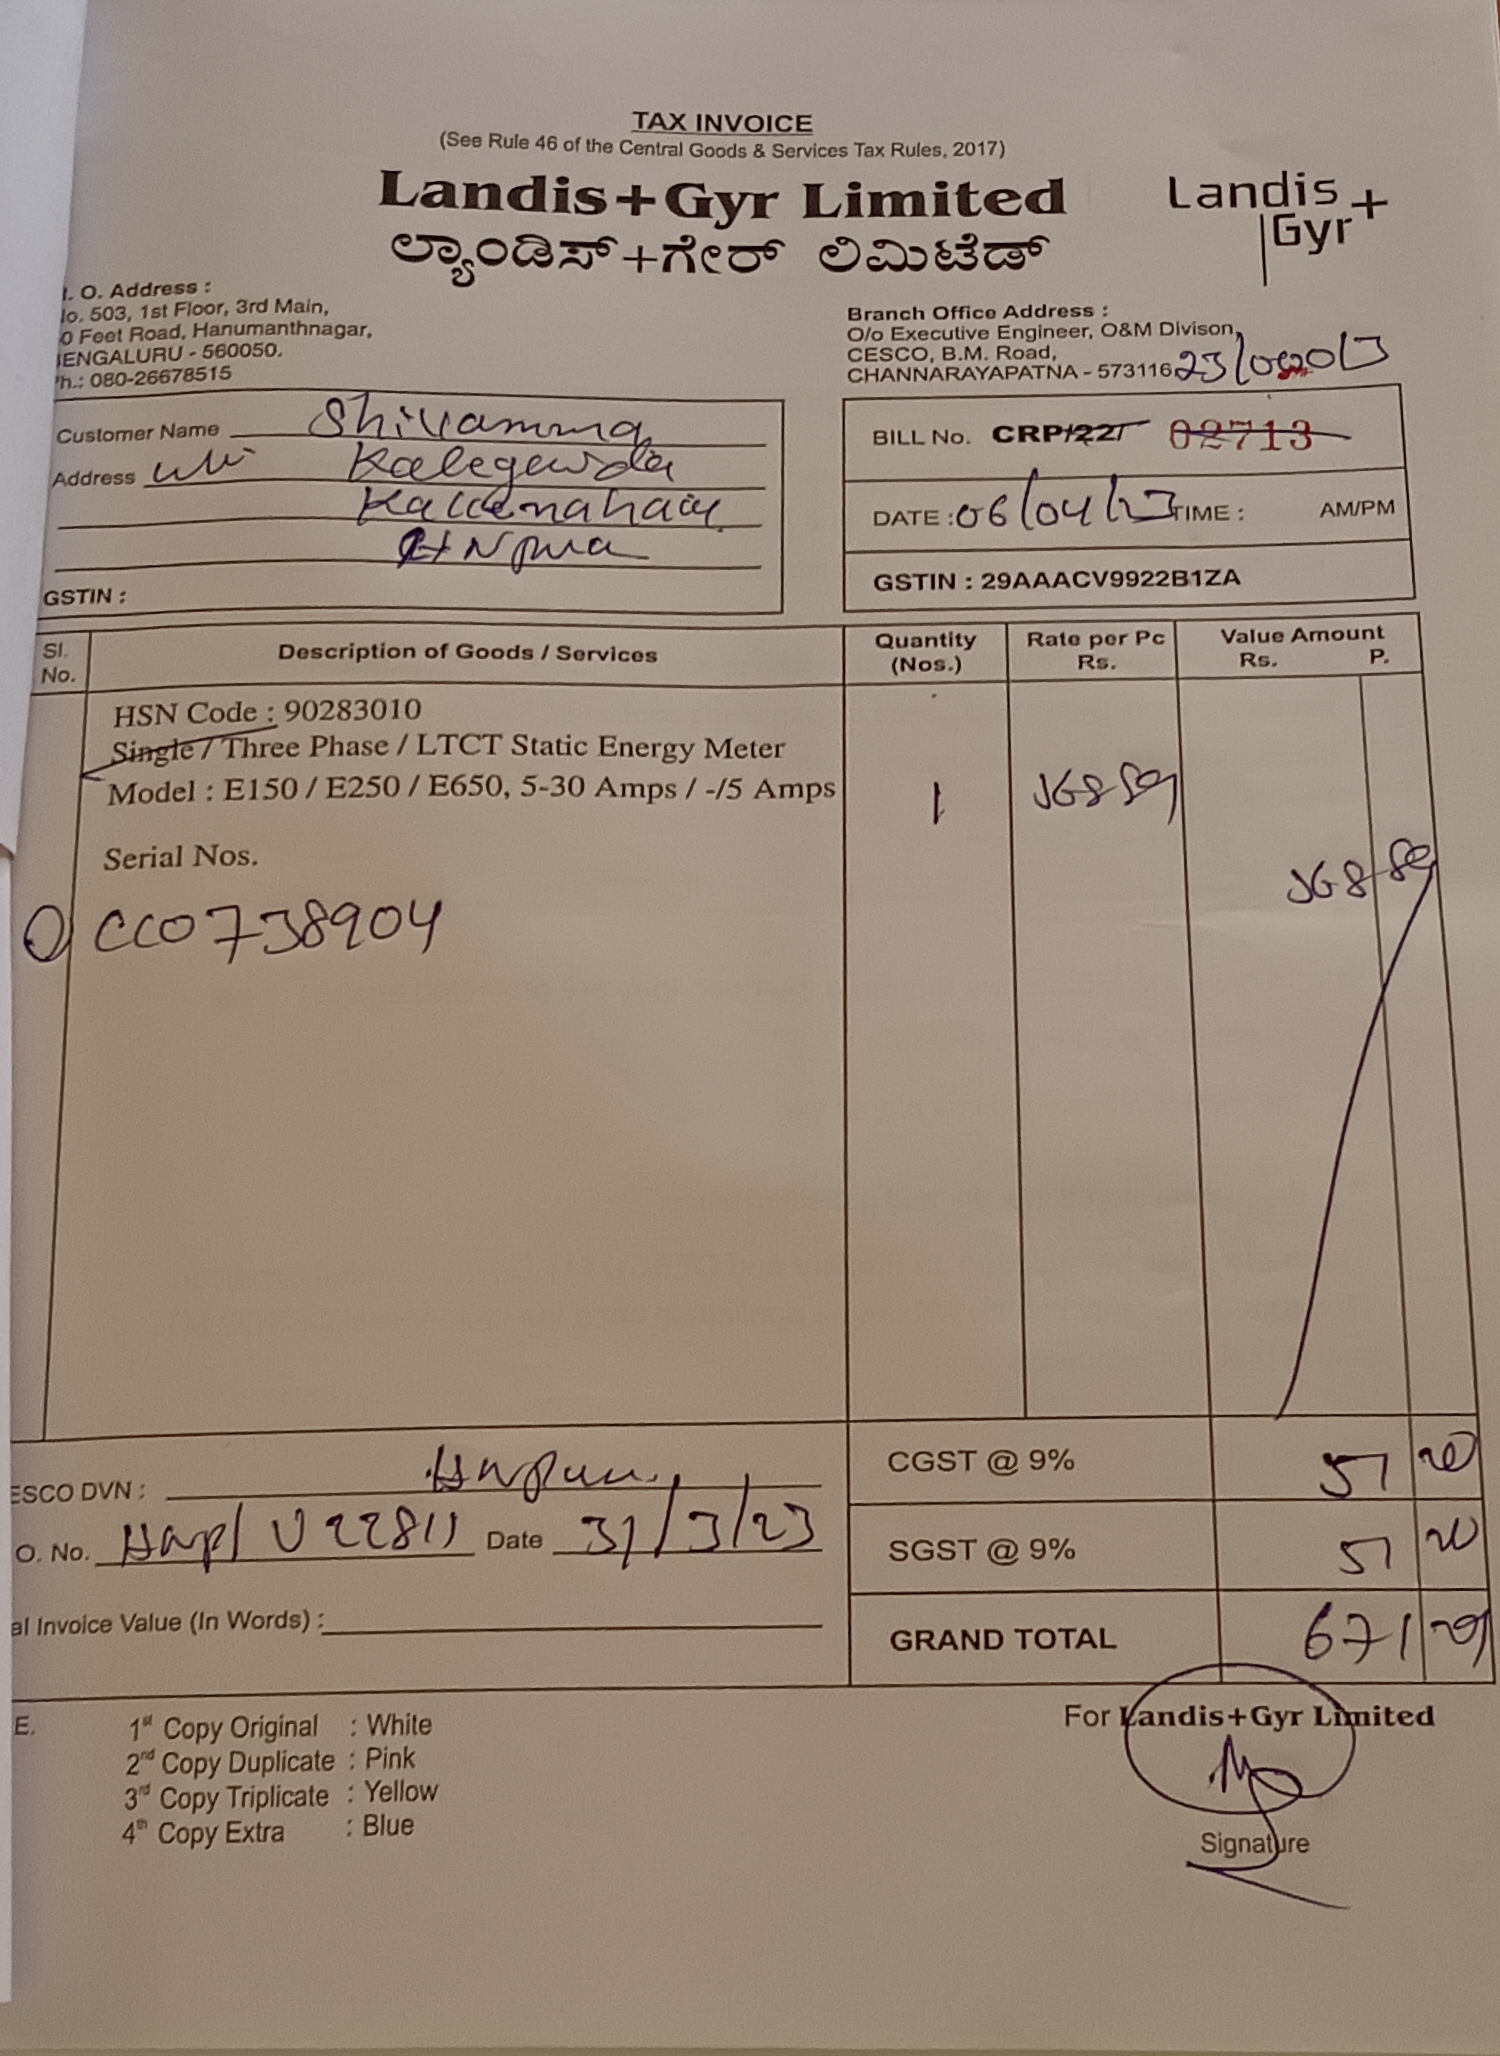 TAX INVOICE
(See Rule 46 of the Central Goods & Services Tax Rules, 2017)
Landis+Gyr Limited
ಲ್ಯಾಂಡಿಸ್+ಗೇರ್ ಲಿಮಿಟೆಡ್
Landis
Gyr+
. O. Address :
o. 503, 1st Floor, 3rd Main,
0 Feet Road, Hanumanthnagar,
ENGALURU - 560050.
h.: 080-26678515
Branch Office Address :
O/o Executive Engineer, O&M Divison,
CESCO, B.M. Road,
CHANNARAYAPATNA - 573116
Customer Name Shivamma
Address Kalegowda
GSTIN :
BILL No. CRP/22/ 02713
DATE : 06/04/23 TIME : AM/PM
GSTIN : 29AAACV9922B1ZA
Sl. No. Description of Goods / Services Quantity (Nos.) Rate per Pc Rs. Value Amount Rs. P.
HSN Code : 90283010
Single / Three Phase / LTCT Static Energy Meter
Model : E150 / E250 / E650, 5-30 Amps / -/5 Amps 1 568 89
Serial Nos.
568 89
1) CC0738904
ESCO DVN :
CGST @ 9% 51 20
O. No. Date 31/3/23
SGST @ 9% 51 20
al Invoice Value (In Words) :
GRAND TOTAL 671 29
E. 1st Copy Original : White
2nd Copy Duplicate : Pink
3rd Copy Triplicate : Yellow
4th Copy Extra : Blue
For Landis+Gyr Limited
Signature